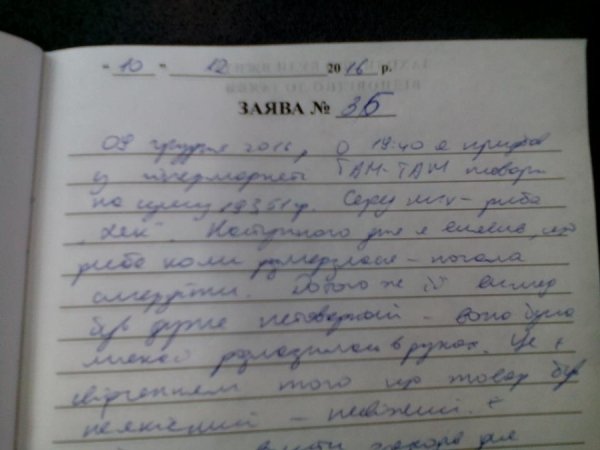 "10" 12 2016 р.
ЗАЯВА № 35
09 грудня 2016, о 19:40 я придбав
у супермаркеті ТАМ-ТАМ товари
на суму 193,51 г. Серед них - риба
„Хек". Наступного дня я виявив, що
риба коли розмерзлася - почала
смердіти. До того ж її вигляд
був дуже нетоварний - вона була
розлазилась в руках. Це є
свідченням того що товар був
неякісний - несвіжий.